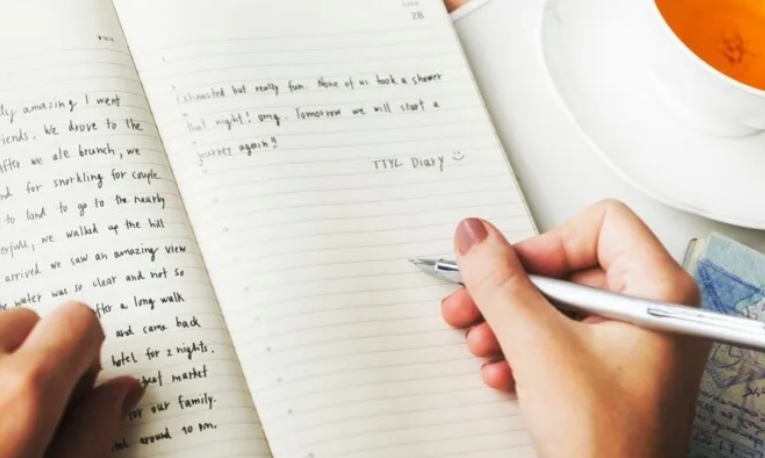 amazing I went
we drove to the
After we ate brunch, we
for snorkling for couple
to land to go to the nearby
we walked up the hill
arrived we saw an amazing view
water was so clear and not so
after a long walk
and came back
hotel for 2 nights.
market
for our family.
around 10 pm.
28
Exhausted but really fun. None of us took a shower
that night! omg. Tomorrow we will start a
journey again!!
TTYL Diary